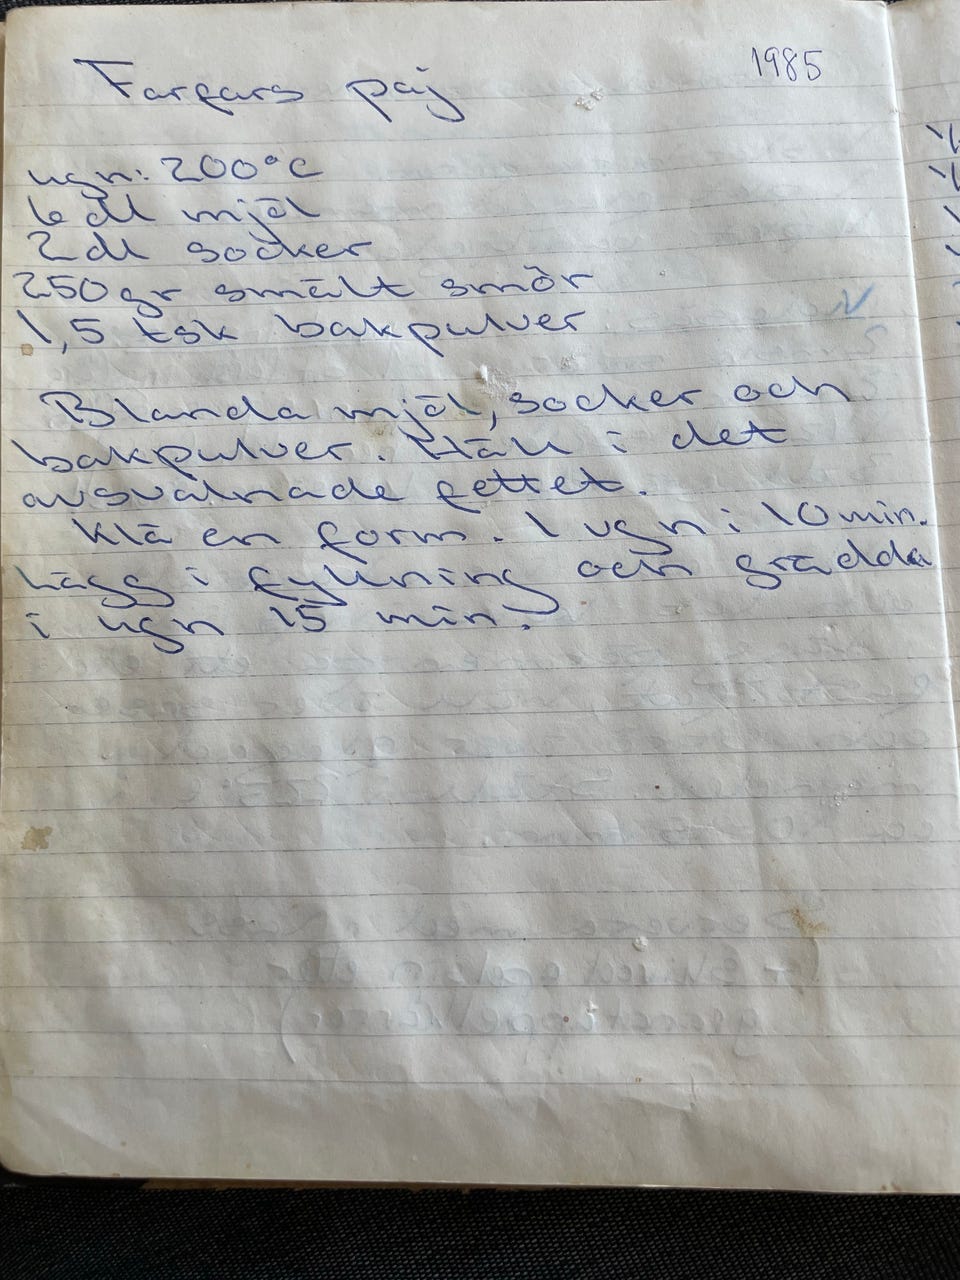 Farfars paj 1985
ugn: 200°C
6 dl mjöl
2 dl socker
250 gr smält smör
1,5 tsk bakpulver
Blanda mjöl, socker och
bakpulver. Häll i det
avsvalnade fettet.
Klä en form. I ugn i 10 min.
Lägg i fyllning och grädda
i ugn 15 min.